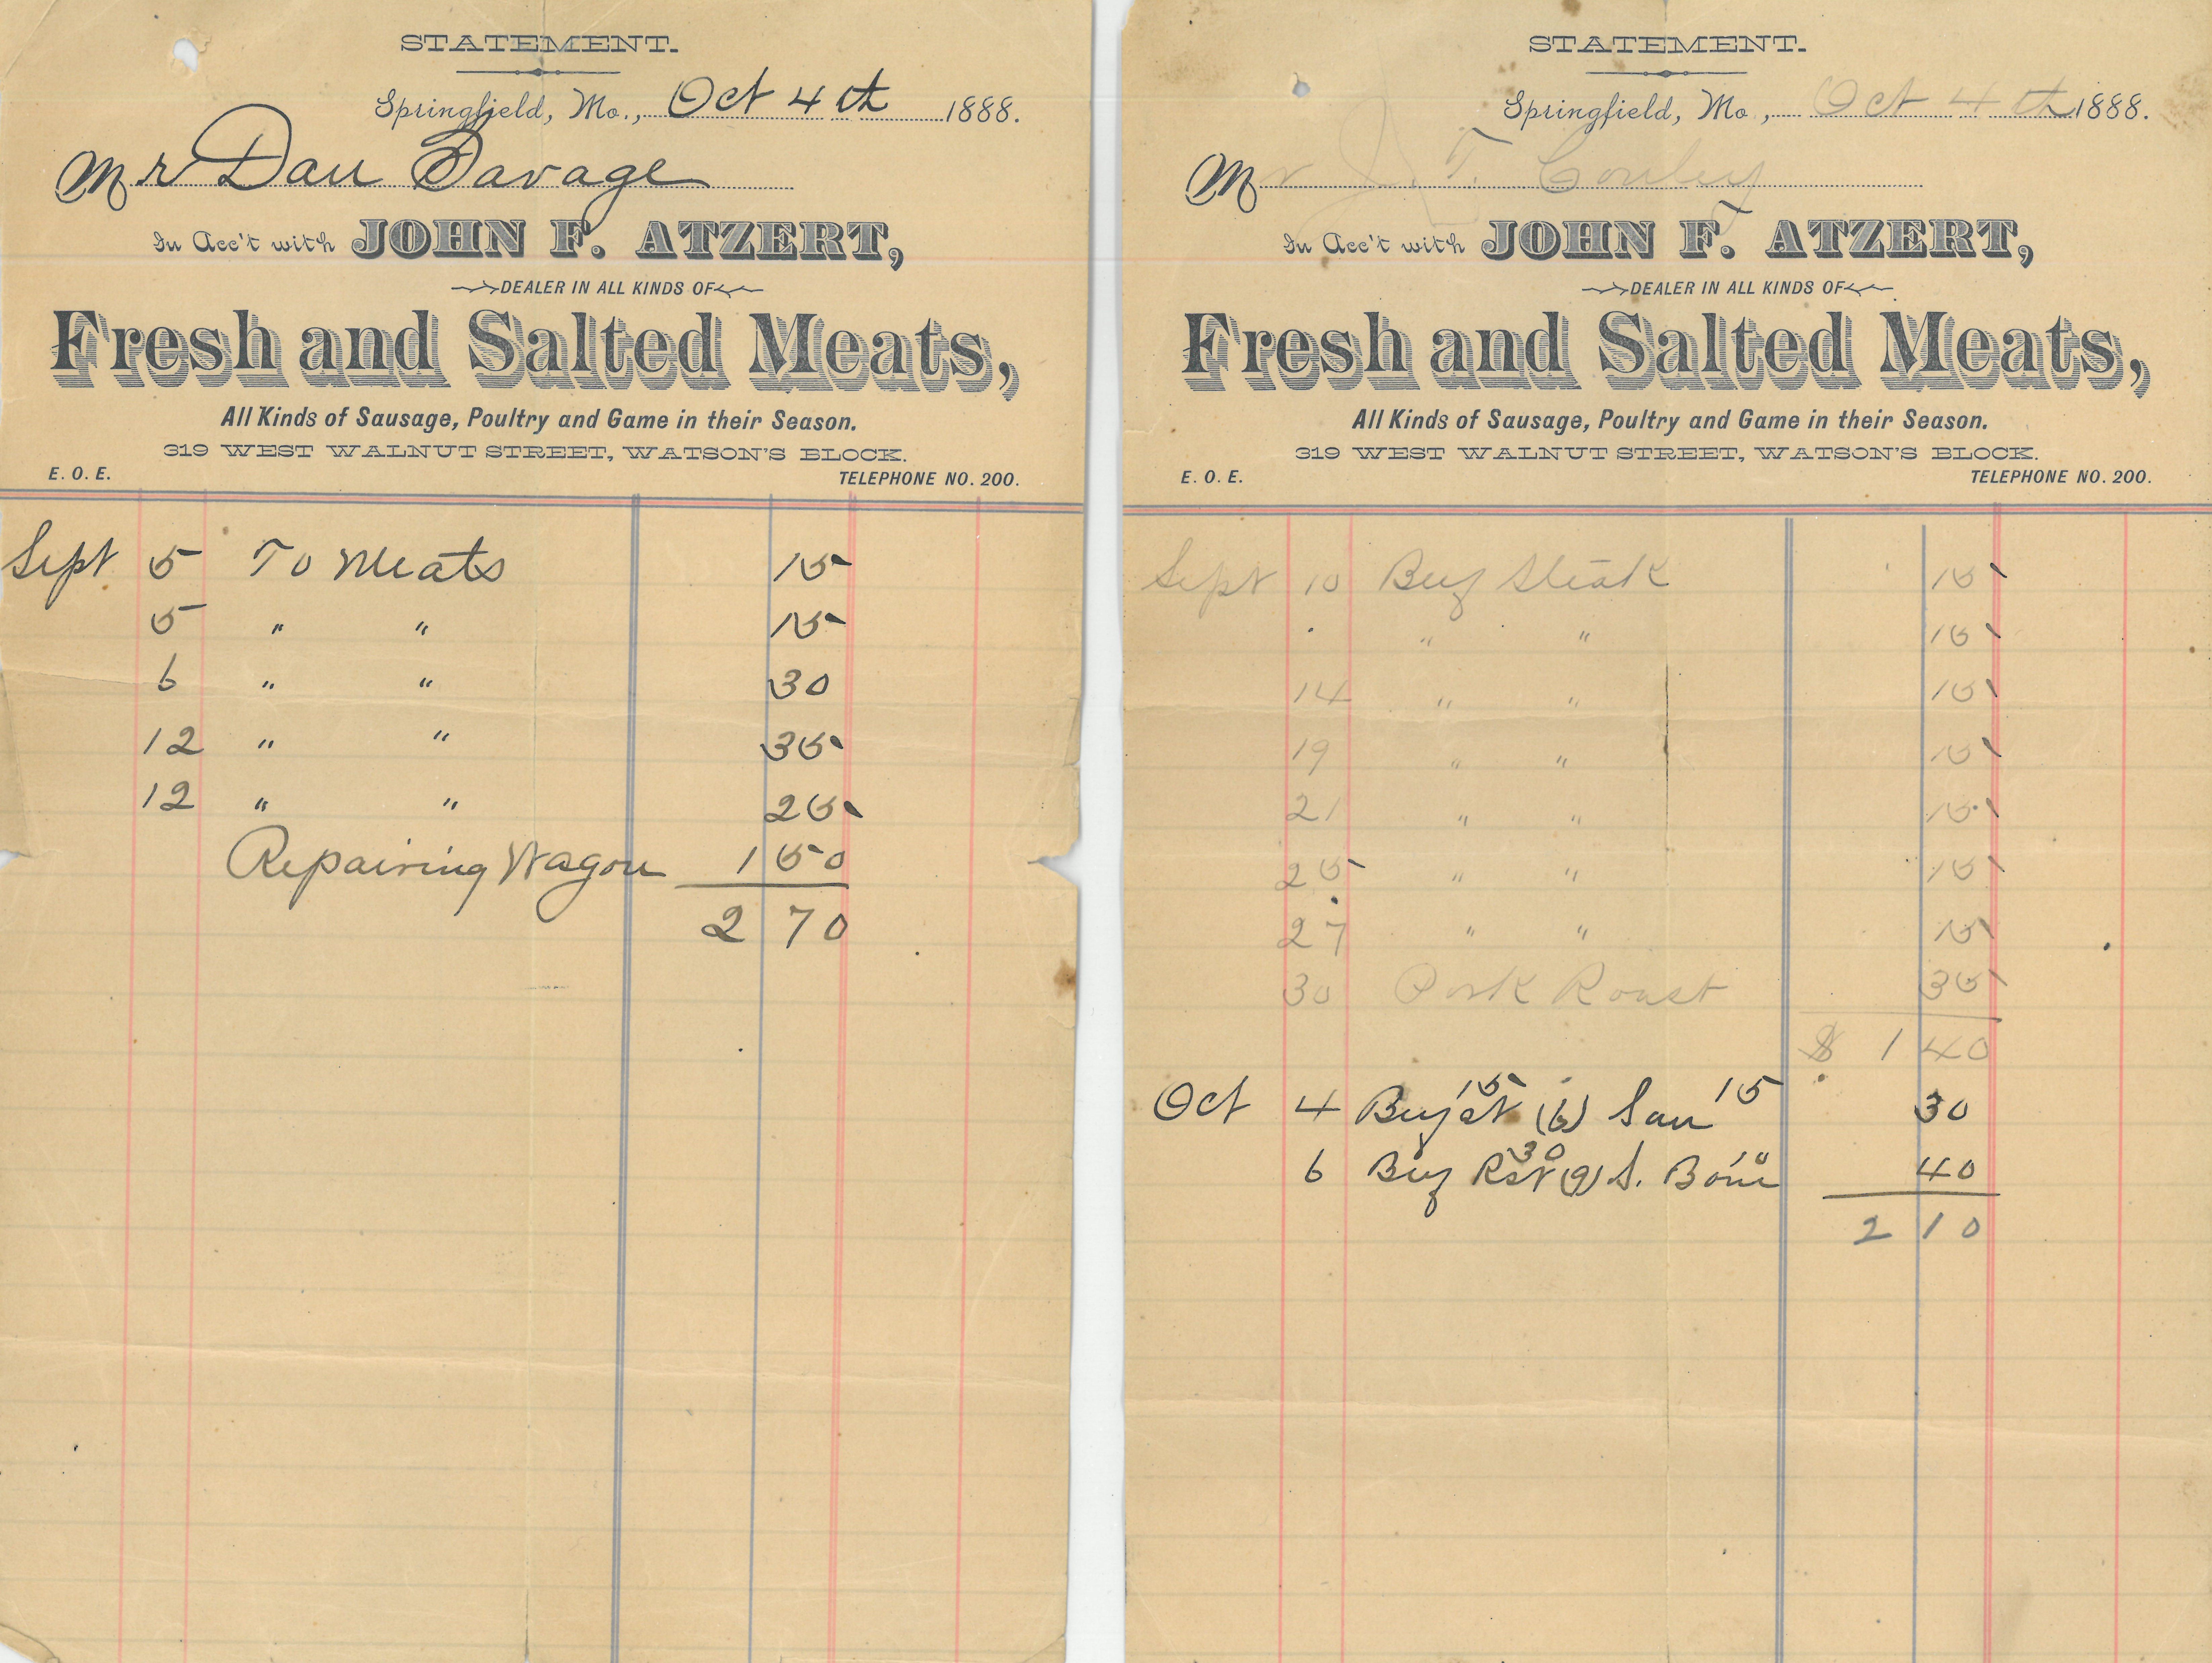 STATEMENT.
Springfield, Mo., Oct 4th 1888.
Mr Dan Savage
In Acc't with JOHN F. ATZERT,
DEALER IN ALL KINDS OF
Fresh and Salted Meats,
All Kinds of Sausage, Poultry and Game in their Season.
319 WEST WALNUT STREET, WATSON'S BLOCK.
E. O. E. TELEPHONE NO. 200.
Sept 5 To Meats 15
5 " " 15
6 " " 30
12 " " 35
12 " " 25
Repairing Wagon 1 50
2 70
STATEMENT.
Springfield, Mo., Oct 4th 1888.
Mr J. T. Conley
In Acc't with JOHN F. ATZERT,
DEALER IN ALL KINDS OF
Fresh and Salted Meats,
All Kinds of Sausage, Poultry and Game in their Season.
319 WEST WALNUT STREET, WATSON'S BLOCK.
E. O. E. TELEPHONE NO. 200.
Sept 10 Beef Steak 15
" " 15
14 " " 15
19 " " 15
21 " " 15
25 " " 15
27 " " 15
30 Pork Roast 35
$ 1 40
Oct 4 Beef st 15 (6) Sau 15 30
6 Beef Rst 30 (9) S. Bone 10 40
2 10